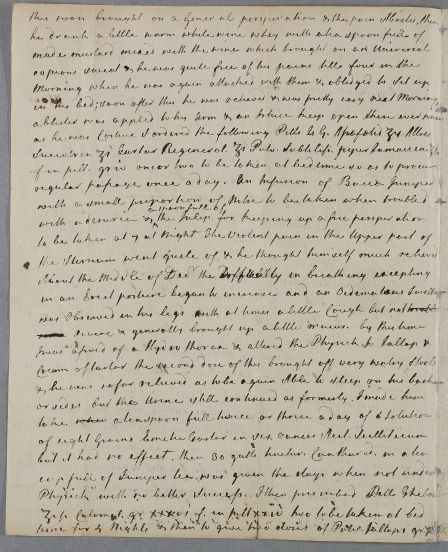 this soon brought on a General perspiration & the pain Abated, then
he drank a little warm white wine whey with a tea spoon full of
made mustard mixed with the wine which brought on an Universal
copious sweat & he was quite free of his pains till four in the
Morning when he was again attacked with them & obliged to set up
in his bed, soon after this he was relieved & was pretty easy next Morning
a blister was applied to his Arm & an Issue keep open there ever since
as he was Costive I ordered the following Pills
of in pill. or two to be taken at bed time so as to procure
regular passage once a day. An Infusion of Bacca Juniper
with a small proportion of to be taken when troubled
with a & a spoon full of the Julep for keeping up a free perspiration
to be taken at 7 at Night The Violent pain in the Upper part of
the Sternum went quite of & he thought himself much relieved
About the Middle of Decr the Difficulty in breathing excepting
in an Erect posture began to increase and an Oedematous Swell
was Observed in his legs with at times a little Cough but not
severe & generally brought up a little mucus. by this time
I was afraid of a Hydrothorax & altered the Physick to Jallap &
Cream of tartar the second dose of this brought off very watry Stools
& he was so far relieved as to be again Able to sleep on his back
or sides but the Urine still continued as formerly. I made him
take a tea spoon full twice or thrice a day of a Solution
of eight Grains Emetic Tartar in six Ounces Acet. Scilliticum
but it had no effect. then 30 gutts tinctur. Cantharid. in a tea
cup full of Juniper tea was given the days when not under
Physick with no better success. I then prescribed Pill
Calomel. gr of in pill two to be taken at bed
time for 4 Nights & then to give two doses of Pulv. Jallap gr